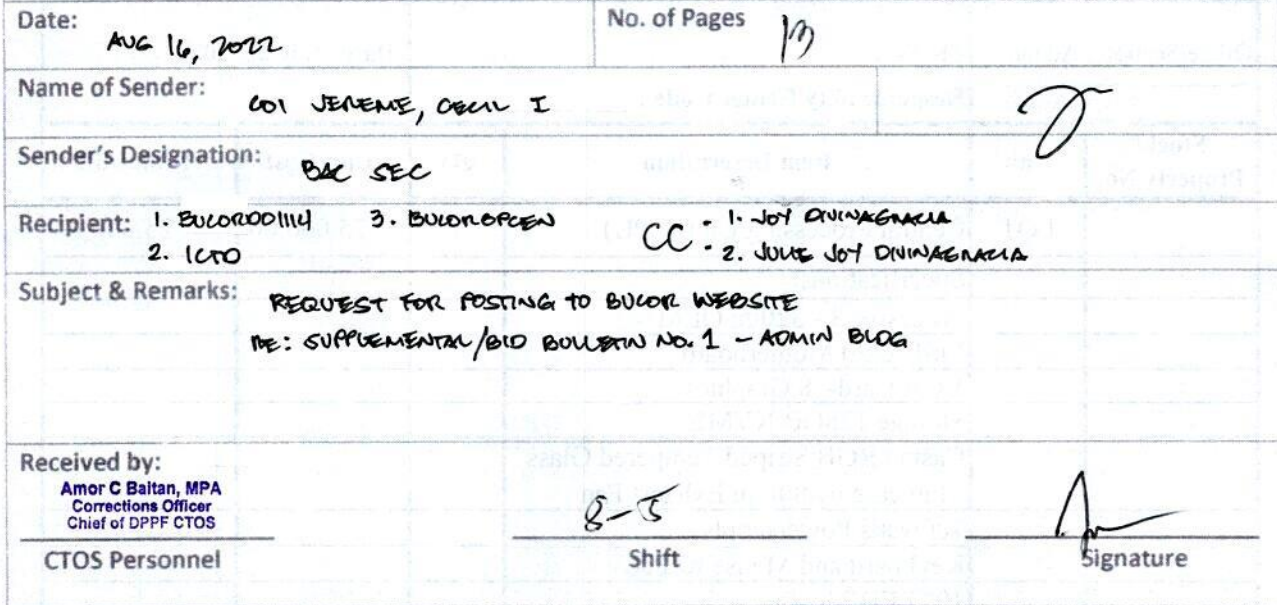 Date: AUG 16, 2022
No. of Pages 13
Name of Sender: CO1 JEREME, CECIL I
Sender's Designation: BAC SEC
Recipient: 1. BUCOR001114 3. BUCOROPCEN CC - 1. JOY DIVINAGRACIA
2. ICTO - 2. JULIE JOY DIVINAGRACIA
Subject & Remarks: REQUEST FOR POSTING TO BUCOR WEBSITE
RE: SUPPLEMENTAL/BID BULLETIN NO. 1 - ADMIN BLDG
Received by:
Amor C Baltan, MPA
Corrections Officer
Chief of DPPF CTOS
8-5
CTOS Personnel Shift Signature